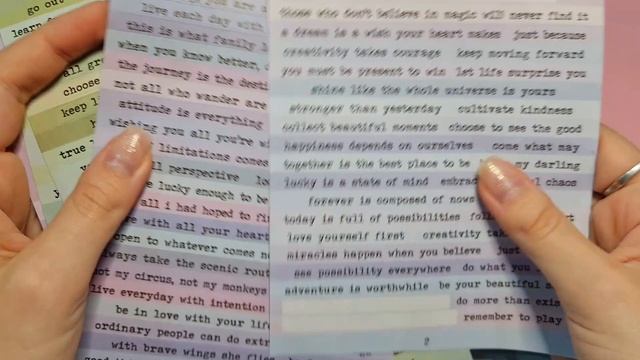 go out
learn
all gr
choose
keep l
true l
live each day with
this is what family l
when you know better, d
the journey is the desti
not all who wander are
attitude is everything
wishing you all you're wi
limitations comes
perspective lo
lucky enough to be
all i had hoped to fi
with all your heart
open to whatever comes n
always take the scenic rout
not my circus, not my monkeys
live everyday with intention
be in love with your life
ordinary people can do extr
with brave wings she flies
those who don't believe in magic will never find it
a dream is a wish your heart makes just because
creativity takes courage keep moving forward
you must be present to win let life surprise you
shine like the whole universe is yours
stronger than yesterday cultivate kindness
collect beautiful moments choose to see the good
happiness depends on ourselves come what may
together is the best place to be my darling
lucky is a state of mind embrac l chaos
forever is composed of nows
today is full of possibilities fol
love yourself first creativity tak
miracles happen when you believe just
see possibility everywhere do what you
adventure is worthwhile be your beautiful
do more than exis
remember to play
2